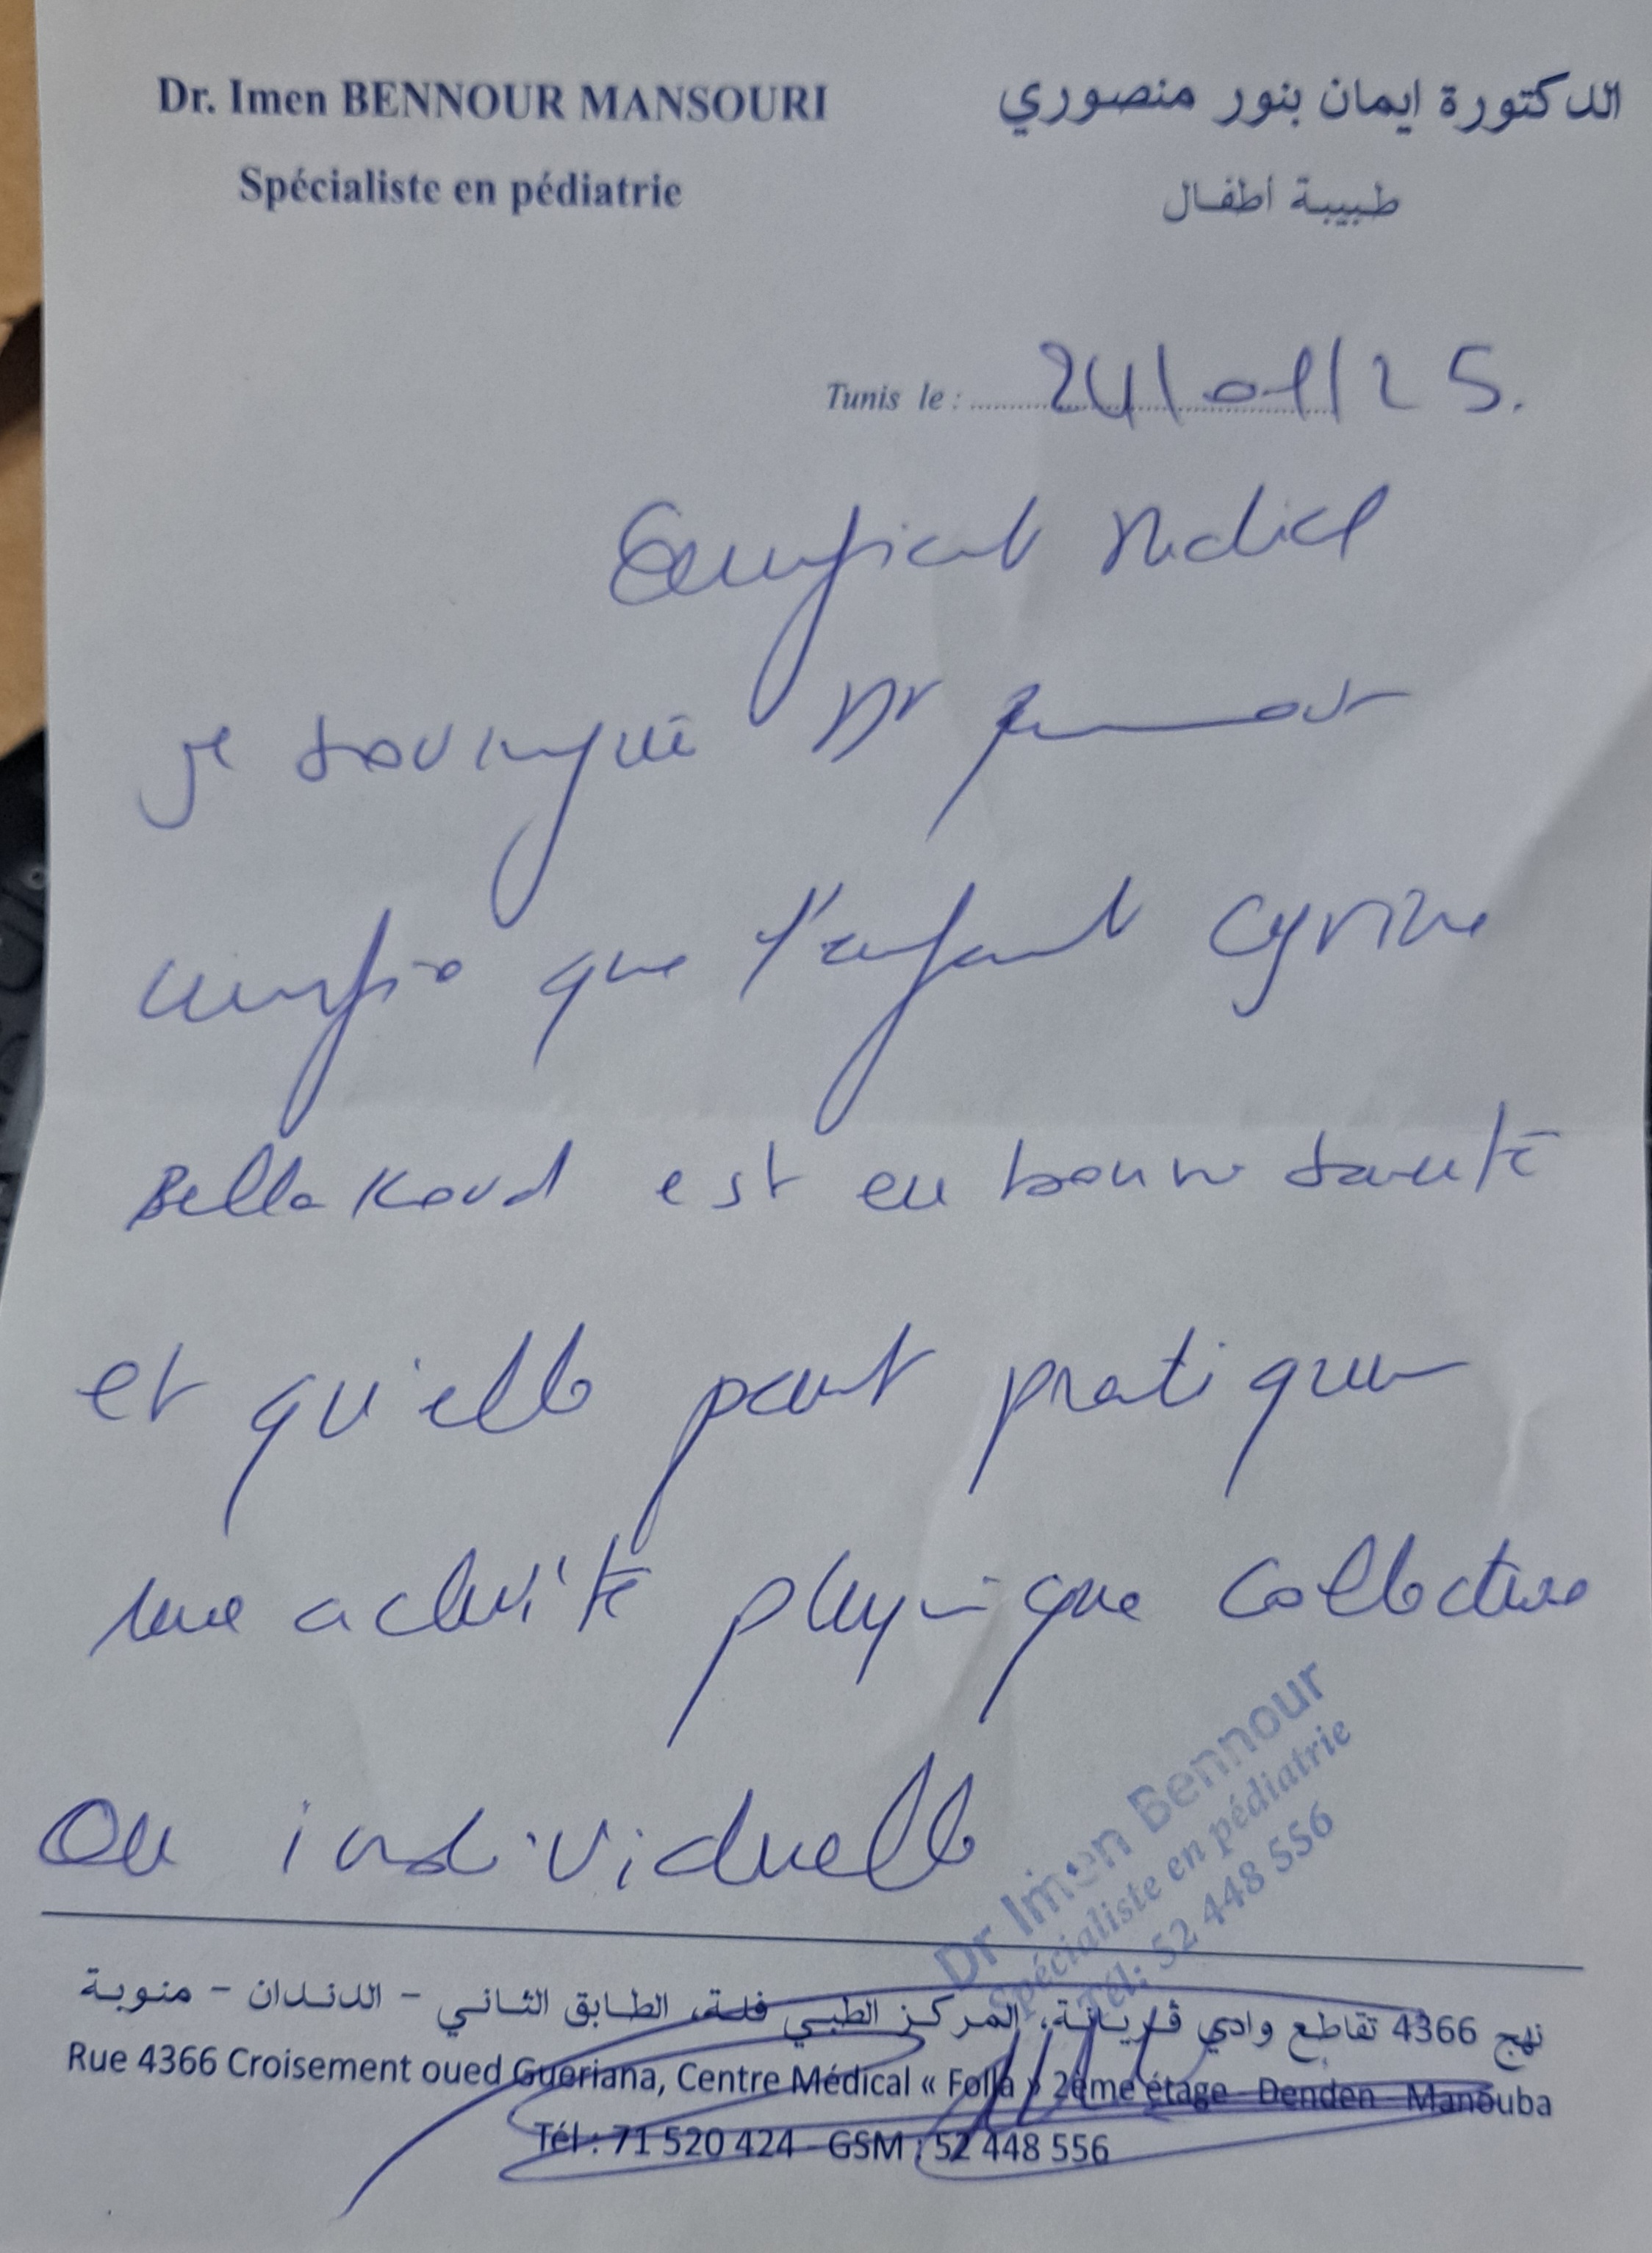 Dr. Imen BENNOUR MANSOURI
الدكتورة ايمان بنور منصوري
Spécialiste en pédiatrie
طبيبة أطفال
Tunis le : 24/01/25.
Certificat Medical
Je soussigné Dr Bennour
certifie que l'enfant Cyrine
Bellakoud est en bonne santé
et qu'elle peut pratiquer
une activité physique collective
ou individuelle
Dr Imen Bennour
Spécialiste en pédiatrie
Tél: 52 448 556
نهج 4366 تقاطع وادي ڤريانة، المركز الطبي فلة، الطابق الثاني – الدندان – منوبة
Rue 4366 Croisement oued Gueriana, Centre Médical « Folla » 2ème étage - Denden - Manouba
Tél : 71 520 424 - GSM : 52 448 556